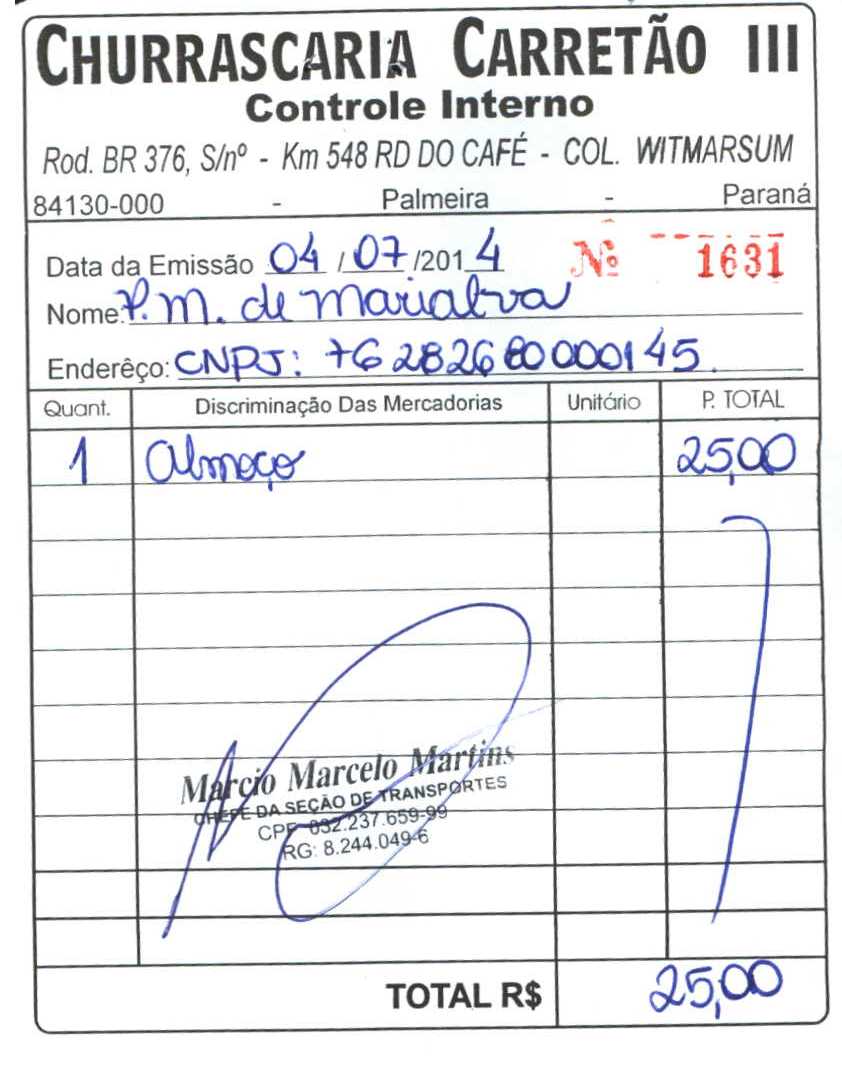 CHURRASCARIA CARRETÃO III
Controle Interno
Rod. BR 376, S/nº - Km 548 RD DO CAFÉ - COL. WITMARSUM
84130-000 - Palmeira - Paraná
Data da Emissão 04 / 07 /2014 Nº 1631
Nome: P. M. de Marialva
Enderêço: CNPJ: 76 282680000145.
Quant. Discriminação Das Mercadorias Unitário P. TOTAL
1 Almoço 25,00
Marcio Marcelo Martins
CHEFE DA SEÇÃO DE TRANSPORTES
CPF 032.237.659-99
RG: 8.244.049-6
TOTAL R$ 25,00